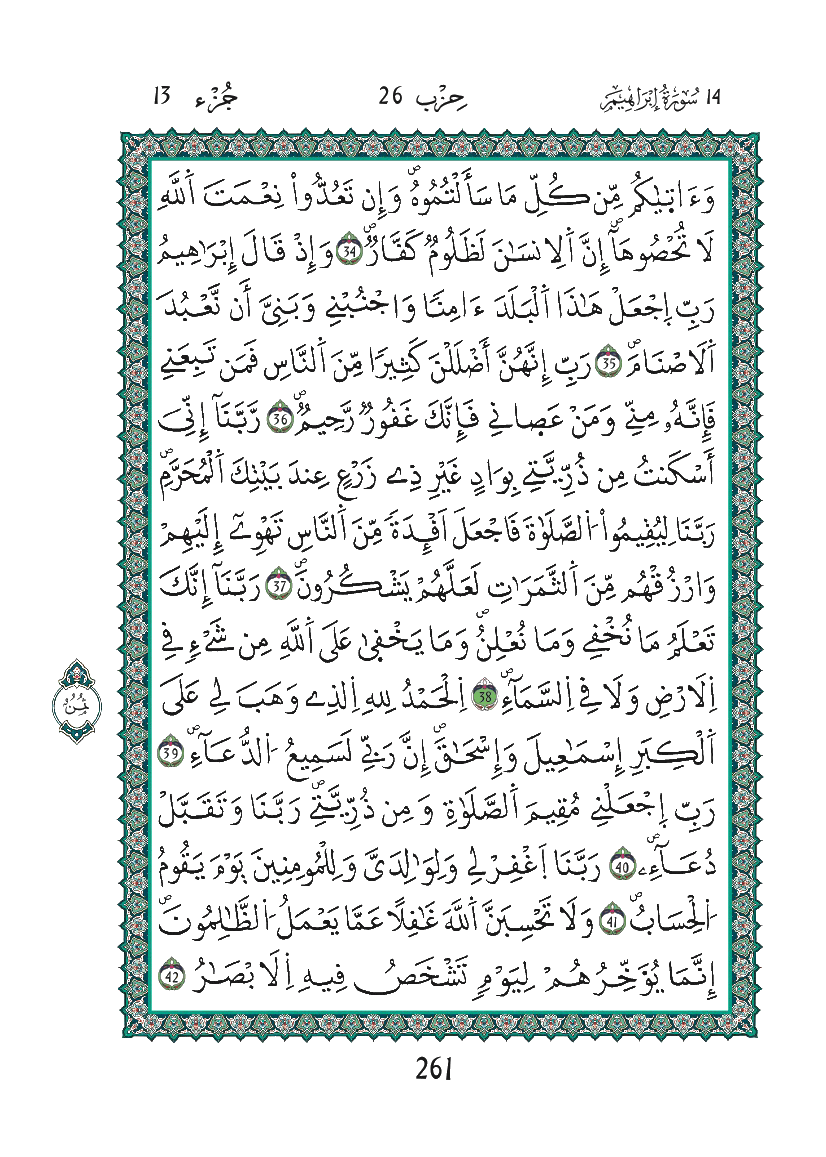 14 سُورَةُ إِبْرَاهِيمَ حِزْب 26 جُزْء 13
وَءَاتٜيٰكُم مِّن كُلِّ مَا سَأَلْتُمُوهُۖ وَإِن تَعُدُّواْ نِعْمَتَ اَ۬للَّهِ
لَا تُحْصُوهَآۖ إِنَّ اَ۬لِانسَٰنَ لَظَلُومٞ كَفَّارٞۖ 34 وَإِذْ قَالَ إِبْرَٰهِيمُ
رَبِّ اِ۪جْعَلْ هَٰذَا اَ۬لْبَلَدَ ءَامِنٗا وَاجْنُبْنِے وَبَنِيَّ أَن نَّعْبُدَ
اَ۬لَاصْنَامَۖ 35 رَبِّ إِنَّهُنَّ أَضْلَلْنَ كَثِيرٗا مِّنَ اَ۬لنَّاسِ فَمَن تَبِعَنِے
فَإِنَّهُۥ مِنِّے وَمَنْ عَصَانِے فَإِنَّكَ غَفُورٞ رَّحِيمٞۖ 36 رَّبَّنَآ إِنِّيَ
أَسْكَنتُ مِن ذُرِّيَّتِے بِوَادٍ غَيْرِ ذِے زَرْعٍ عِندَ بَيْتِكَ اَ۬لْمُحَرَّمِۖ
رَبَّنَا لِيُقِيمُواْ اُ۬لصَّلَوٰةَ فَاجْعَلَ اَفْـِٕدَةٗ مِّنَ اَ۬لنَّاسِ تَهْوِےٓ إِلَيْهِمْ
وَارْزُقْهُم مِّنَ اَ۬لثَّمَرَٰتِ لَعَلَّهُمْ يَشْكُرُونَۖ 37 رَبَّنَآ إِنَّكَ
تَعْلَمُ مَا نُخْفِے وَمَا نُعْلِنُۖ وَمَا يَخْفٜيٰ عَلَى اَ۬للَّهِ مِن شَےْءٖ فِے
اِ۬لَارْضِ وَلَا فِے اِ۬لسَّمَآءِۖ 38 اِ۬لْحَمْدُ لِلهِ اِ۬لذِے وَهَبَ لِے عَلَى
اَ۬لْكِبَرِ إِسْمَٰعِيلَ وَإِسْحَٰقَۖ إِنَّ رَبِّے لَسَمِيعُ اُ۬لدُّعَآءِۖ 39
رَبِّ اِ۪جْعَلْنِے مُقِيمَ اَ۬لصَّلَوٰةِ وَمِن ذُرِّيَّتِےۖ رَبَّنَا وَتَقَبَّلْ
دُعَآءِۦۖ 40 رَبَّنَا اَ۪غْفِرْ لِے وَلِوَٰلِدَيَّ وَلِلْمُومِنِينَ يَوْمَ يَقُومُ
اُ۬لْحِسَابُۖ 41 وَلَا تَحْسِبَنَّ اَ۬للَّهَ غَٰفِلاً عَمَّا يَعْمَلُ اُ۬لظَّٰلِمُونَۖ
إِنَّمَا يُؤَخِّرُهُمْ لِيَوْمٖ تَشْخَصُ فِيهِ اِ۬لَابْصَٰرُ 42
ثُمُنُ
261